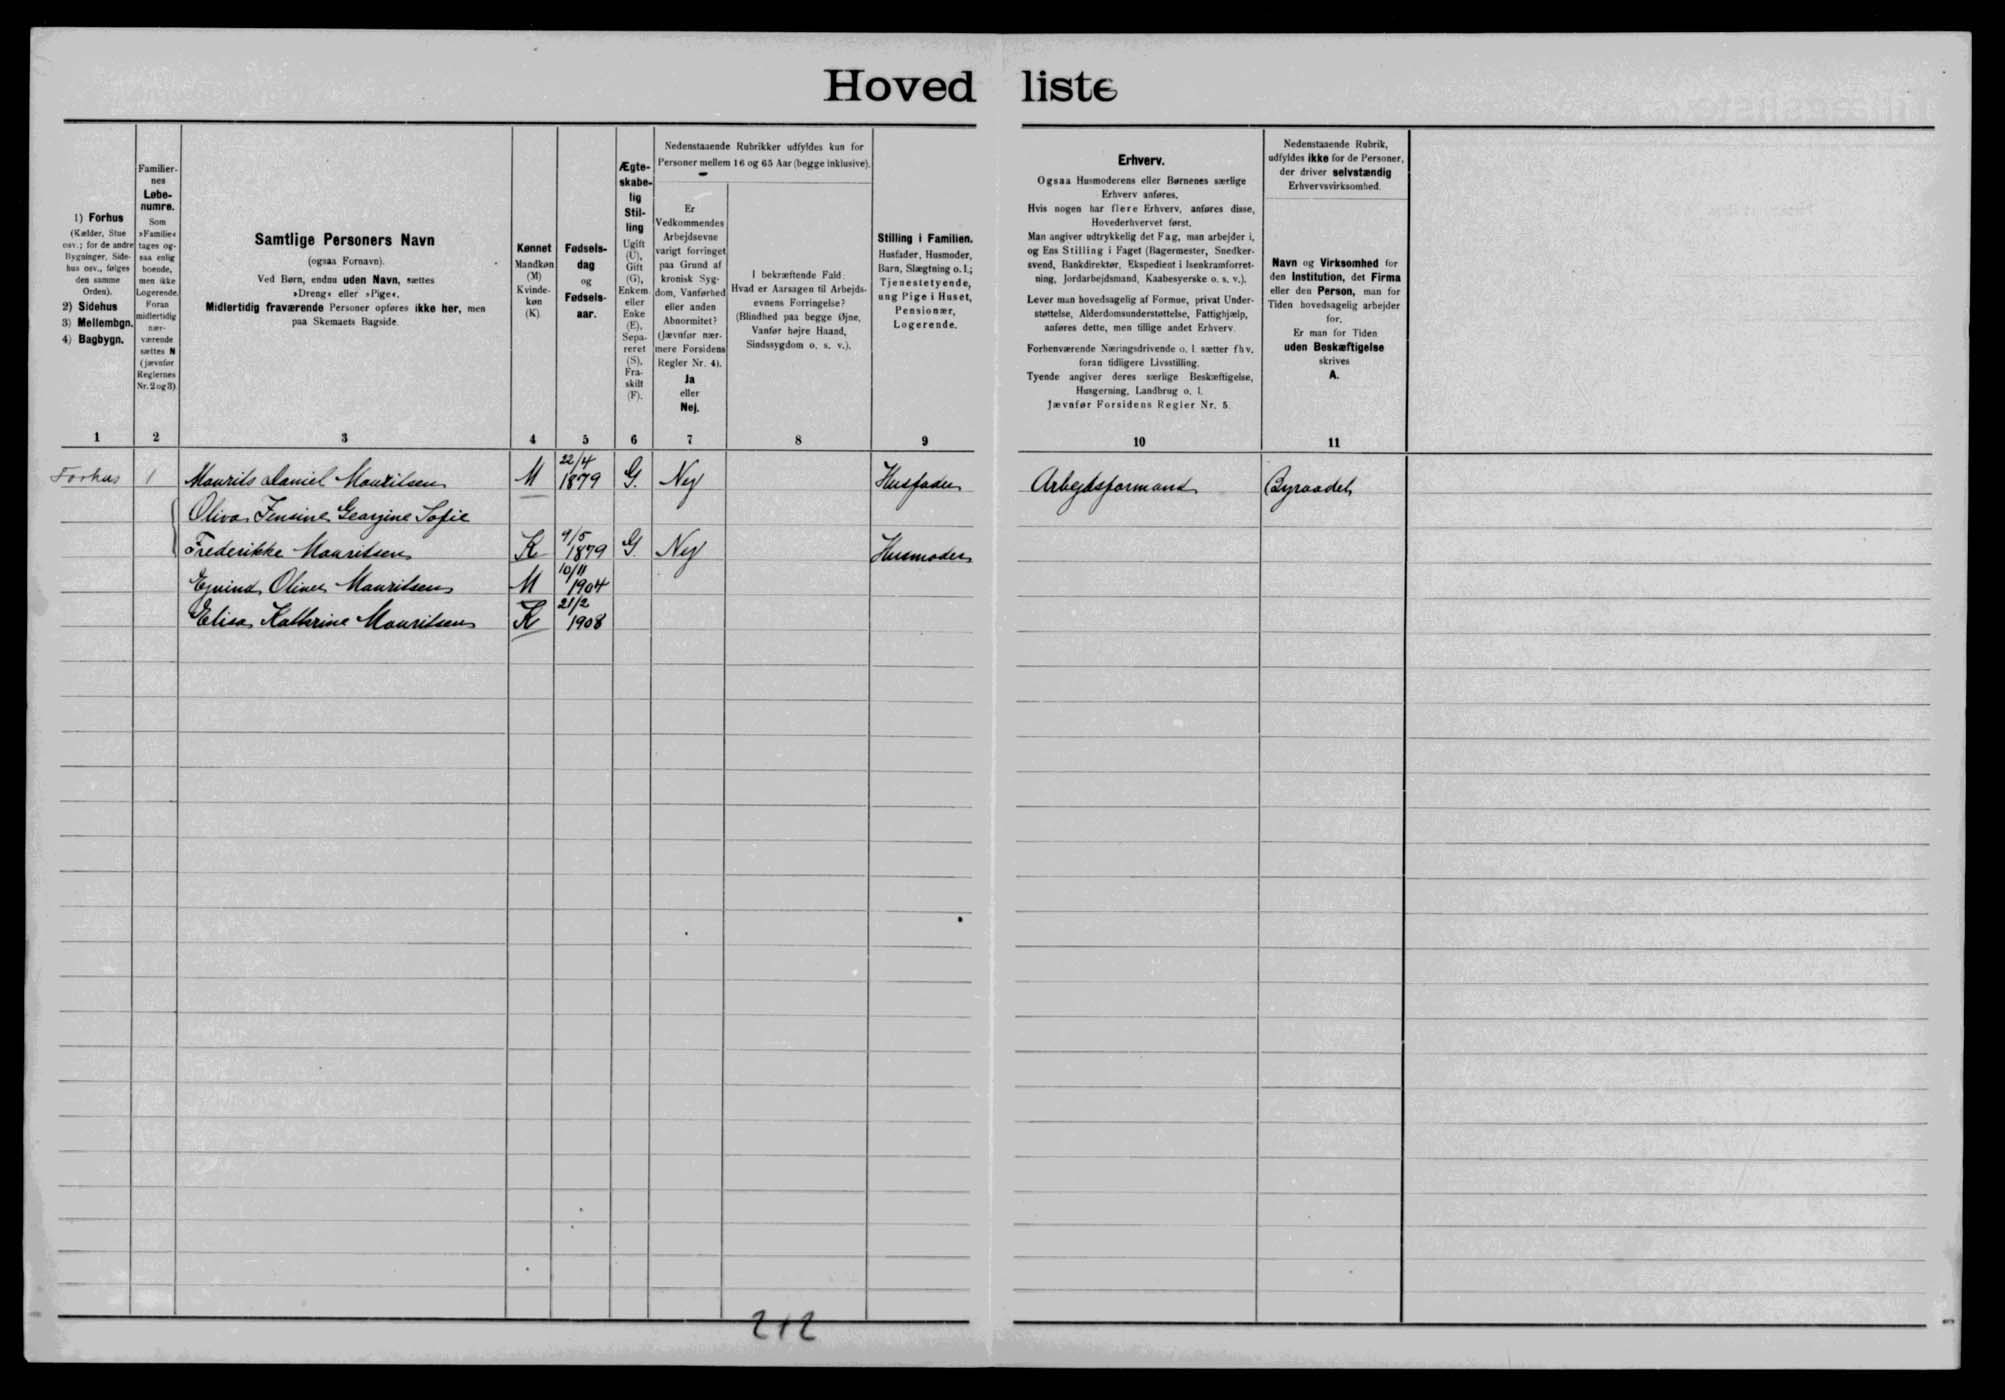 Hovedliste
1) Forhus
(Kælder, Stue
osv.; for de andre
Bygninger, Side-
hus osv., følges
den samme
Orden).
2) Sidehus
3) Mellembgn.
4) Bagbygn.
Familier-
nes
Løbe-
numre.
Som
»Familie«
tages og-
saa enlig
boende,
men ikke
Logerende.
Foran
midlertidig
nær-
værende
sættes N
(jævnfør
Reglernes
Nr. 2 og 3).
Samtlige Personers Navn
(ogsaa Fornavn).
Ved Børn, endnu uden Navn, sættes
»Dreng« eller »Pige«.
Midlertidig fraværende Personer opføres ikke her, men
paa Skemaets Bagside.
Kønnet
Mandkøn
(M)
Kvinde-
køn
(K)
Fødsels-
dag
og
Fødsels-
aar.
Ægte-
skabe-
lig
Stil-
ling
Ugift
(U),
Gift
(G),
Enkem.
eller
Enke
(E),
Sepa-
reret
(S),
Fra-
skilt
(F).
Nedenstaaende Rubrikker udfyldes kun for
Personer mellem 16 og 65 Aar (begge inklusive).
Er
Vedkommendes
Arbejdsevne
varigt forringet
paa Grund af
kronisk Syg-
dom, Vanførhed
eller anden
Abnormitet?
(Jævnfør nær-
mere Forsidens
Regler Nr. 4).
Ja
eller
Nej.
I bekræftende Fald:
Hvad er Aarsagen til Arbejds-
evnens Forringelse?
(Blindhed paa begge Øjne,
Vanfør højre Haand,
Sindssygdom o. s. v.).
Stilling i Familien.
Husfader, Husmoder,
Barn, Slægtning o. l.;
Tjenestetyende,
ung Pige i Huset,
Pensionær,
Logerende.
Erhverv.
Ogsaa Husmoderens eller Børnenes særlige
Erhverv anføres.
Hvis nogen har flere Erhverv, anføres disse,
Hovederhvervet først.
Man angiver udtrykkelig det Fag, man arbejder i,
og Ens Stilling i Faget (Bagermester, Snedker-
svend, Bankdirektør, Ekspedient i Isenkramforret-
ning, Jordarbejdsmand, Kaabesyerske o. s. v.).
Lever man hovedsagelig af Formue, privat Under-
støttelse, Alderdomsunderstøttelse, Fattighjælp,
anføres dette, men tillige andet Erhverv.
Forhenværende Næringsdrivende o. l. sætter fhv.
foran tidligere Livsstilling.
Tyende angiver deres særlige Beskæftigelse,
Husgerning, Landbrug o. l.
Jævnfør Forsidens Regler Nr. 5.
Nedenstaaende Rubrik,
udfyldes ikke for de Personer,
der driver selvstændig
Erhvervsvirksomhed.
Navn og Virksomhed for
den Institution, det Firma
eller den Person, man for
Tiden hovedsagelig arbejder
for.
Er man for Tiden
uden Beskæftigelse
skrives
A.
1 2 3 4 5 6 7 8 9 10 11
Forhus 1 Maurits Daniel Mauritsen M 22/4 1879 G. Nej Husfader Arbejdsformand Byraadet
Oliva Jensine Georgine Sofie
Frederikke Mauritsen K 9/5 1879 G. Nej Husmoder
Ejvind Oliver Mauritsen M 10/11 1904
Elisa Kathrine Mauritsen K 21/2 1908
2+2